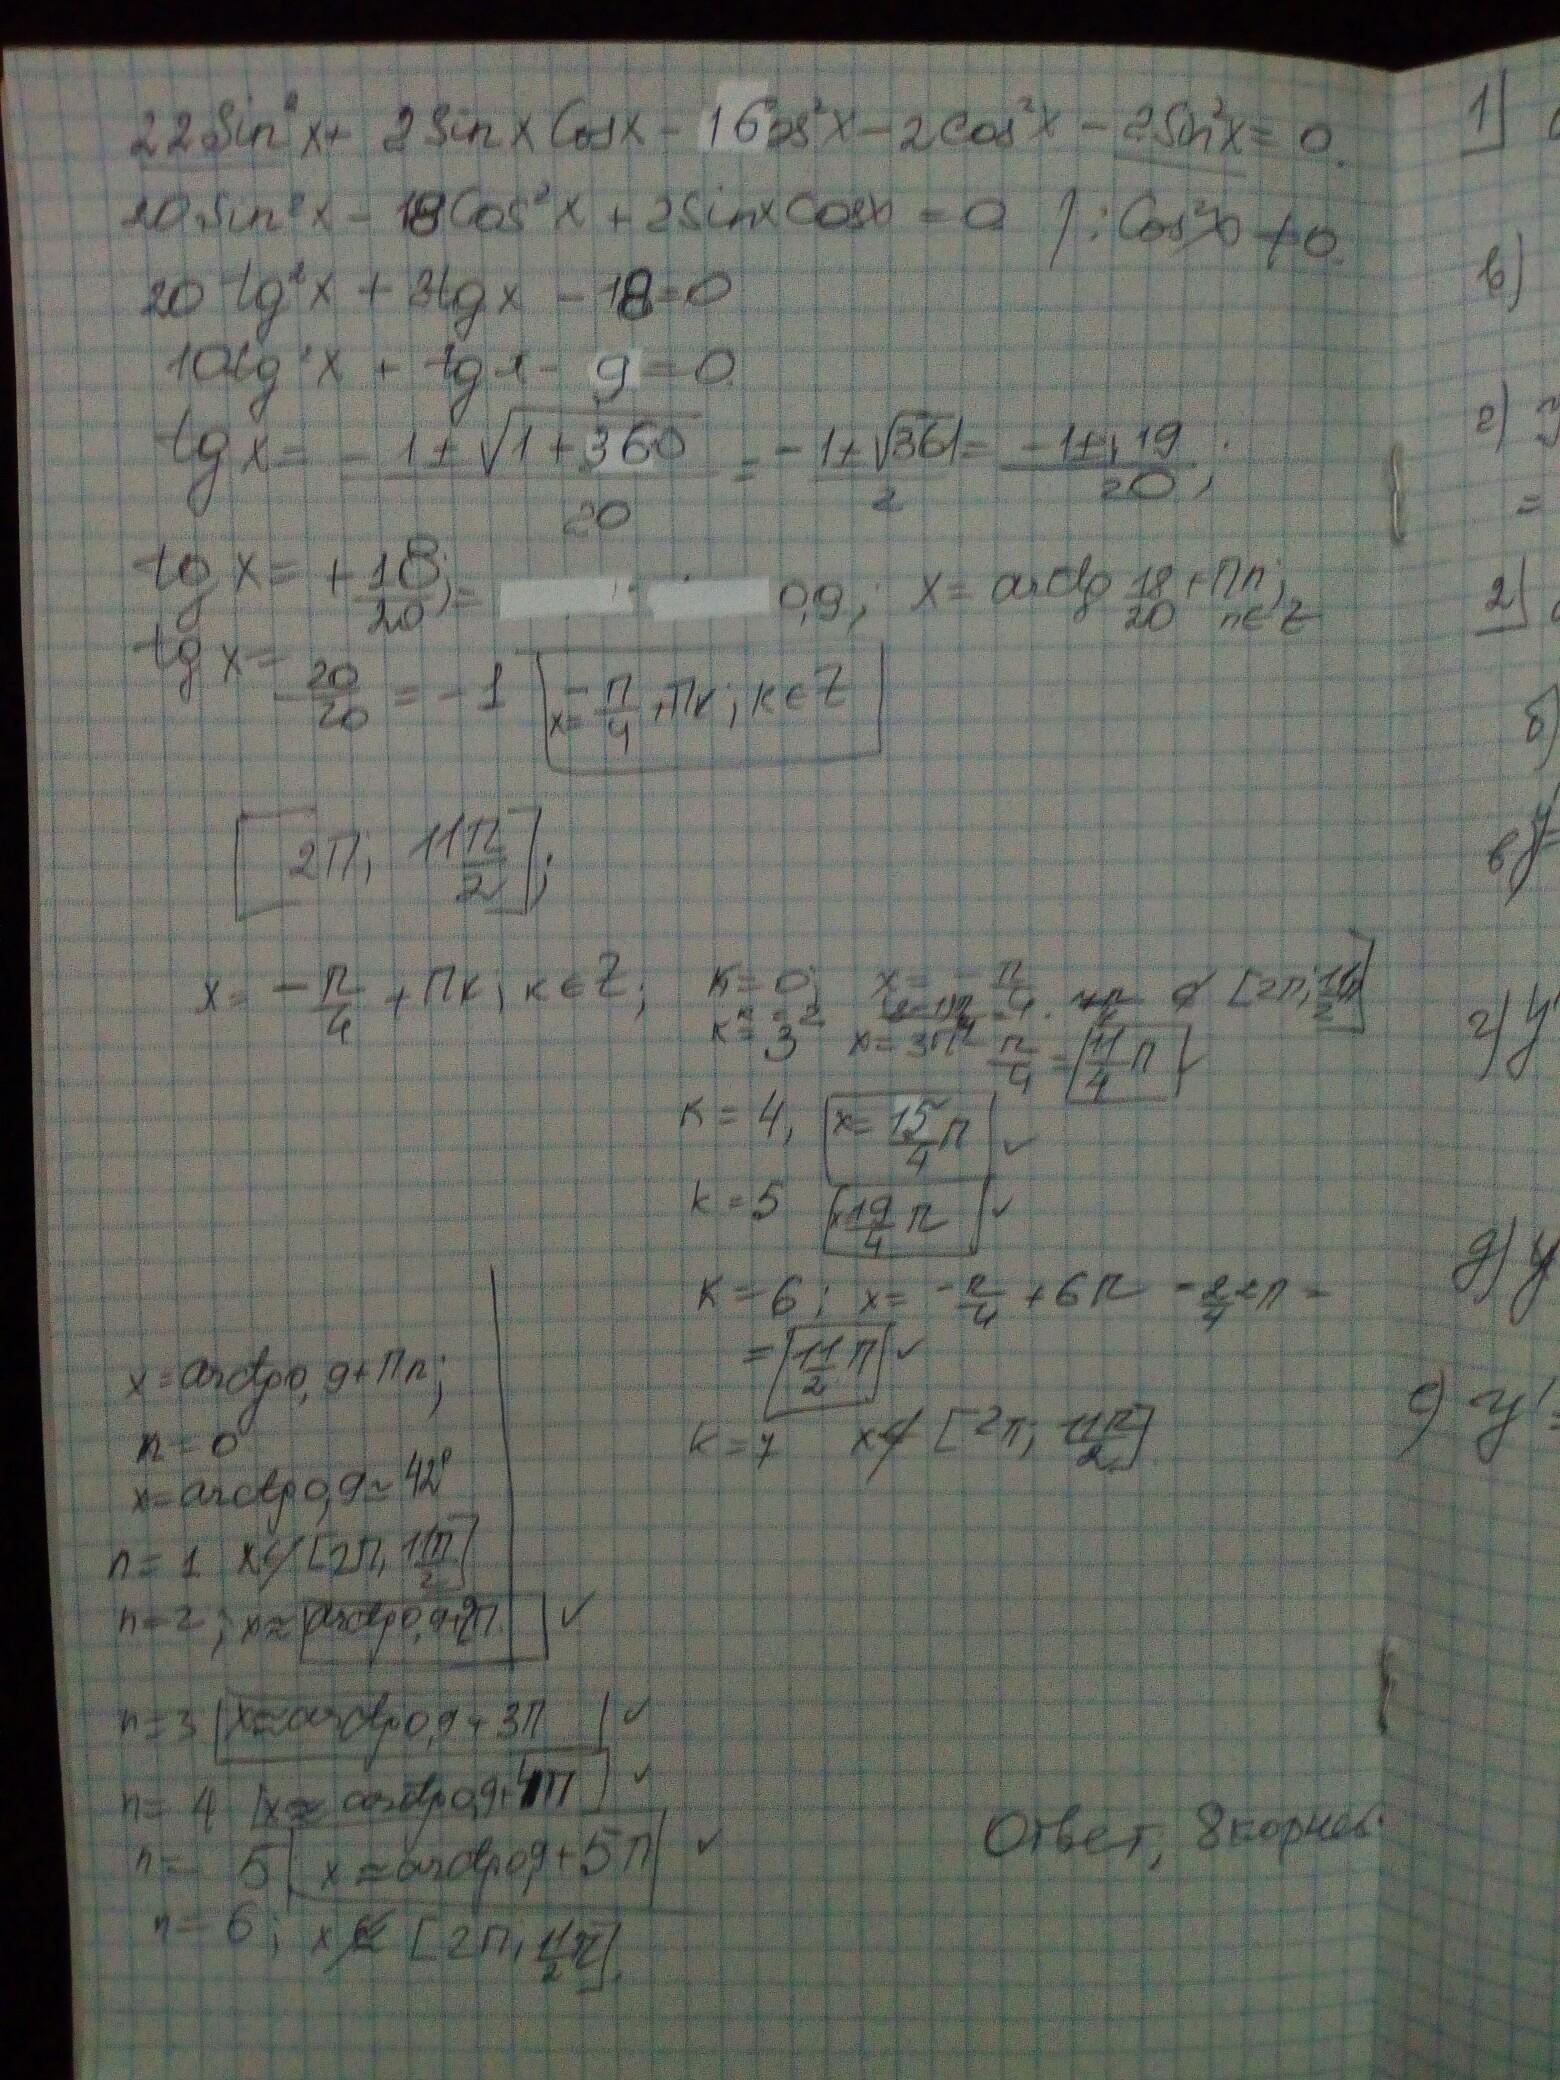 22Sin²x + 2Sin x Cosx - 16Cos²x - 2Cos²x - 2Sin²x = 0.
20Sin²x - 18Cos²x + 2SinxCosx = 0 /: Cos²x ≠ 0
20 tg²x + 2tgx - 18 = 0
10tg²x + tgx - 9 = 0
tg x = -1 ± √(1+360) / 20 = -1 ± √361 / 2 = -1 ± 19 / 20;
tg x = +18/20; = 0,9; x = arctg 18/20 + Пn; n ∈ Z
tg x = -20/20 = -1 x = -П/4 + Пк; к ∈ Z
[2П; 11П/2];
x = -П/4 + Пк; к ∈ Z;
к = 0; x = -П/4 ∉ [2П; 11П/2]
к = 2
к = 3 x = 3П - П/4 = 11/4 П ✓
к = 4, x = 15/4 П ✓
к = 5 x = 19/4 П ✓
к = 6; x = -П/4 + 6П =
= 11/2 П ✓
к = 7 x ∉ [2П; 11П/2]
x = arctg 0,9 + Пn;
n = 0
x = arctg 0,9 ≈ 42°
n = 1 x ∉ [2П; 11П/2]
n = 2; x = arctg 0,9 + 2П ✓
n = 3 x = arctg 0,9 + 3П ✓
n = 4 x = arctg 0,9 + 4П ✓
n = 5 x = arctg 0,9 + 5П ✓
n = 6; x ∉ [2П; 11/2 П].
Ответ, 8 корней.
1)
в)
г)
=
2)
б)
в) y
г) y'
д) y
е) y' =